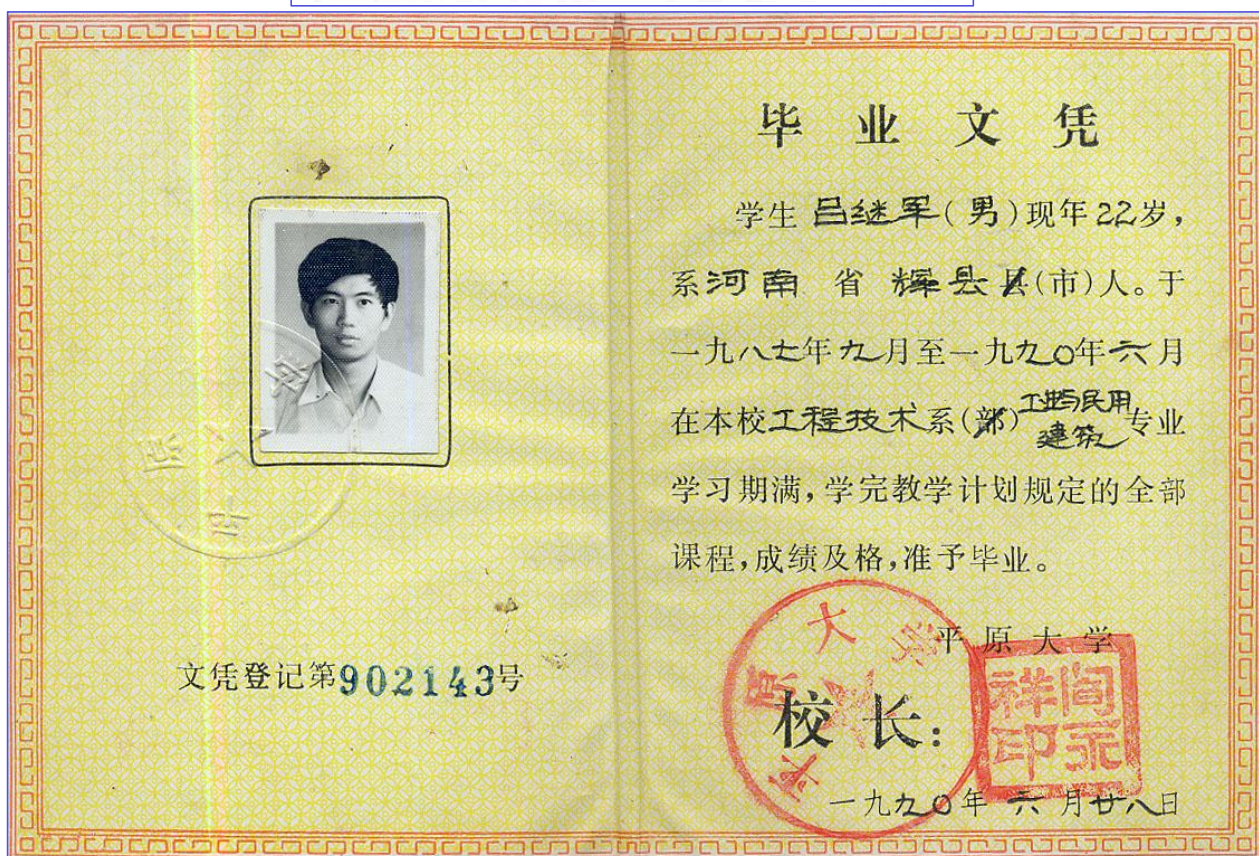 文凭登记第902143号
毕业文凭
学生 吕继军(男)现年22岁,
系河南省辉县县(市)人。于
一九八七年九月至一九九〇年六月
在本校工程技术系(部)工业与民用建筑专业
学习期满,学完教学计划规定的全部
课程,成绩及格,准予毕业。
平原大学
校长:
阎永祥印
一九九〇年六月廿八日
平原大学